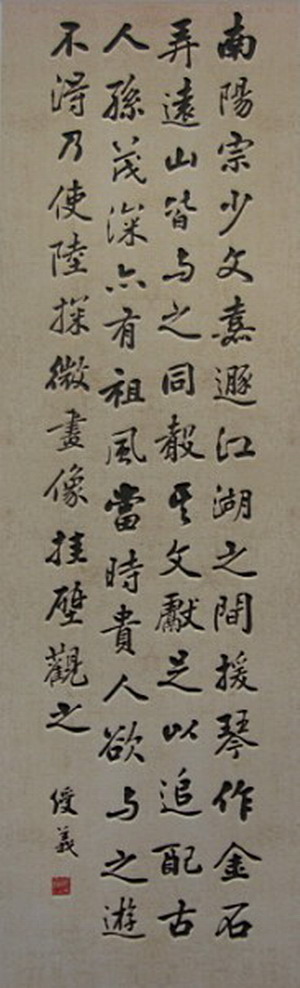 南陽宗少文嘉遯江湖之間援琴作金石
弄遠山皆与之同聲其文獻足以追配古
人孫茂深亦有祖風當時貴人欲与之遊
不得乃使陸探微畫像挂壁觀之
義